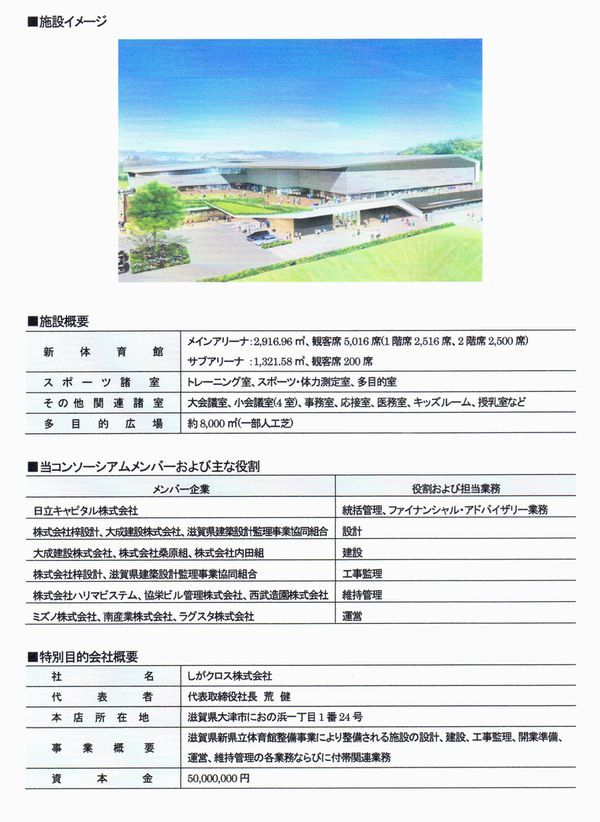 ■施設イメージ
■施設概要
新体育館 メインアリーナ:2,916.96㎡、観客席5,016席(1階席2,516席、2階席2,500席)
サブアリーナ:1,321.58㎡、観客席200席
スポーツ諸室 トレーニング室、スポーツ・体力測定室、多目的室
その他関連諸室 大会議室、小会議室(4室)、事務室、応接室、医務室、キッズルーム、授乳室など
多目的広場 約8,000㎡(一部人工芝)
■当コンソーシアムメンバーおよび主な役割
メンバー企業 役割および担当業務
日立キャピタル株式会社 統括管理、ファイナンシャル・アドバイザリー業務
株式会社梓設計、大成建設株式会社、滋賀県建築設計監理事業協同組合 設計
大成建設株式会社、株式会社桑原組、株式会社内田組 建設
株式会社梓設計、滋賀県建築設計監理事業協同組合 工事監理
株式会社ハリマビステム、協栄ビル管理株式会社、西武造園株式会社 維持管理
ミズノ株式会社、南産業株式会社、ラグスタ株式会社 運営
■特別目的会社概要
社名 しがクロス株式会社
代表者 代表取締役社長 荒 健
本店所在地 滋賀県大津市におの浜一丁目1番24号
事業概要 滋賀県新県立体育館整備事業により整備される施設の設計、建設、工事監理、開業準備、
運営、維持管理の各業務ならびに付帯関連業務
資本金 50,000,000円